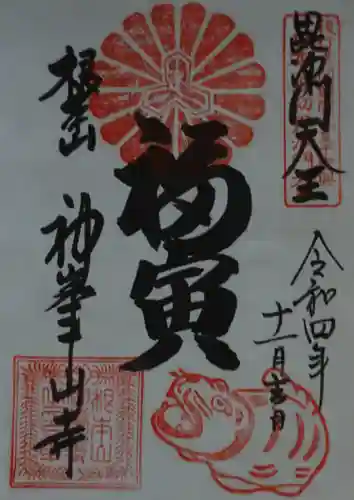 毘沙門天王
令和四年
十一月吉日
福寅
根本山
神峯山寺